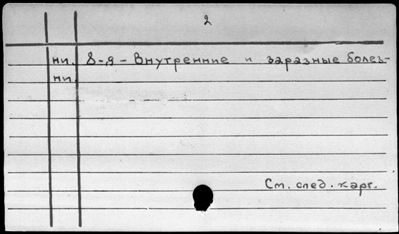 2
ни. 8-я - Внутренние и заразные болез-
ни.
См. след. карт.